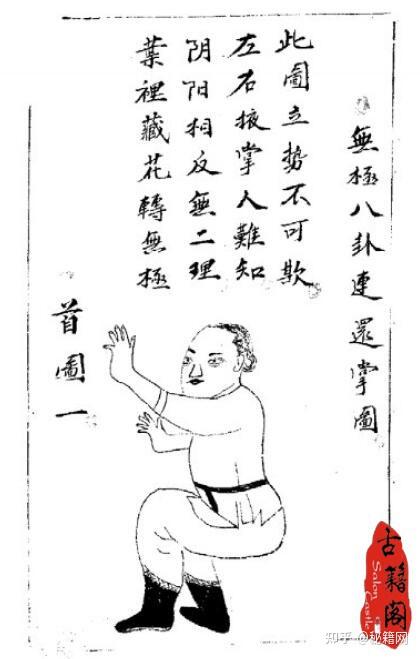 無極八卦連還掌圖
此圖立势不可欺
左右掖掌人難知
阴阳相反無二理
葉裡藏花轉無極
首圖一
古籍阁
Salon
Castle
知乎 @秘籍网